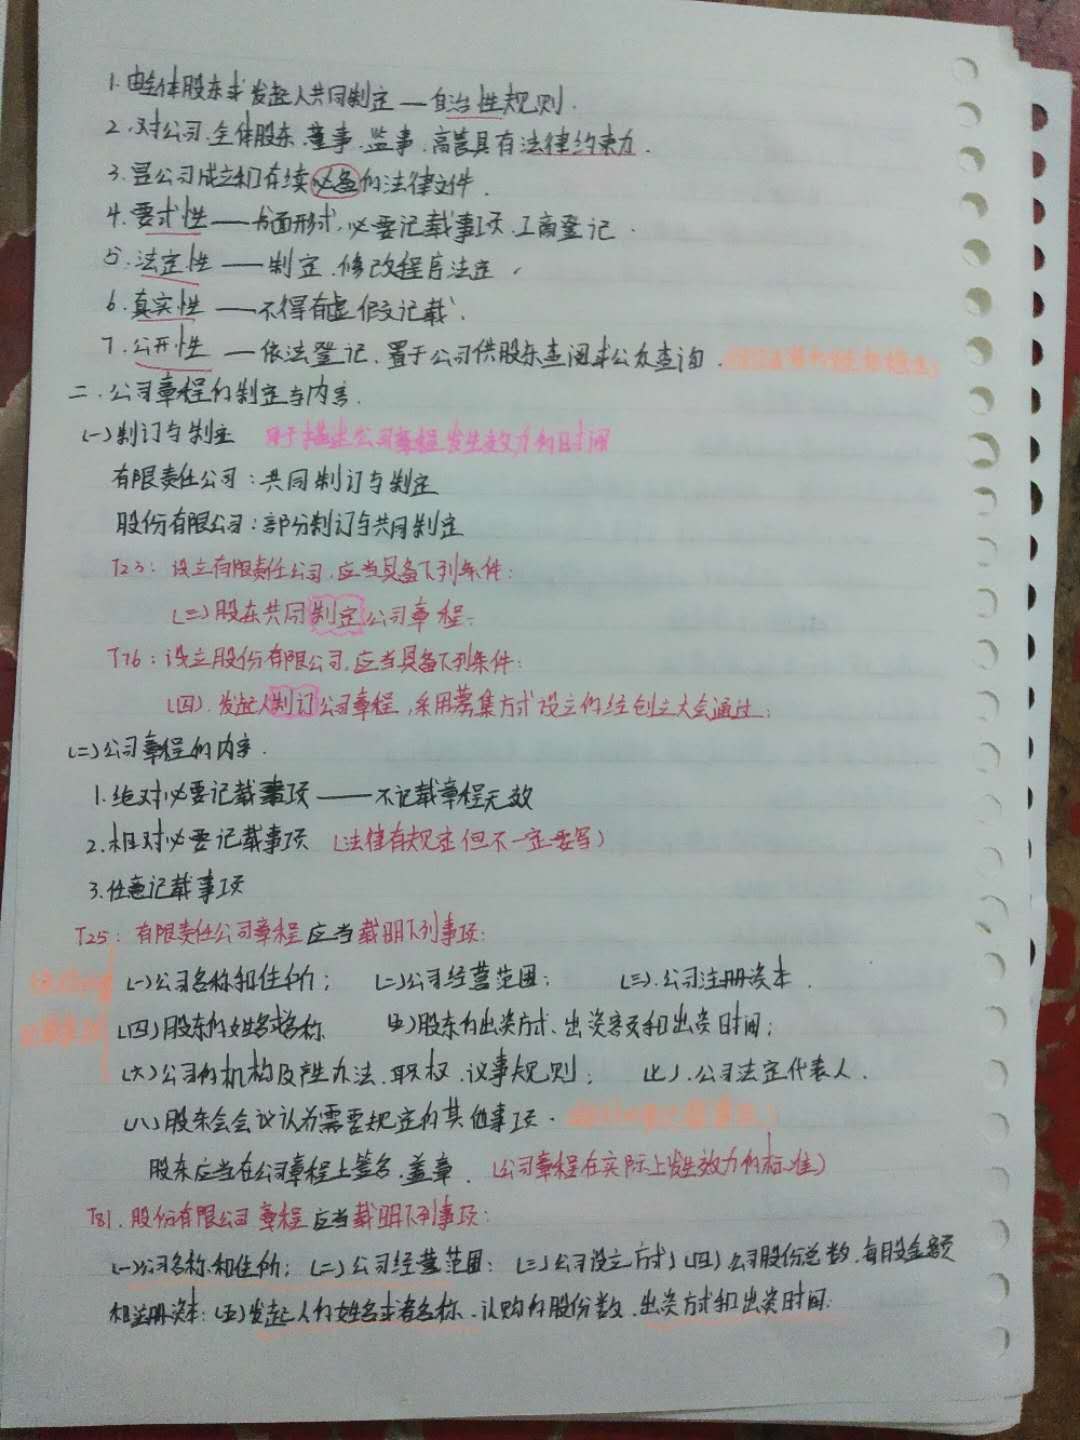 1.由全体股东或发起人共同制定——自治性规则.
2.对公司.全体股东.董事.监事.高管具有法律约束力.
3.是公司成立和存续必备的法律文件.
4.要式性——书面形式,必要记载事项.工商登记.
5.法定性——制定.修改程序法定.
6.真实性——不得有虚假记载.
7.公开性——依法登记.置于公司供股东查阅或公众查询.
二.公司章程的制定与内容.
(一)制订与制定 用于描述公司章程发生效力的时间
有限责任公司:共同制订与制定
股份有限公司:部分制订与共同制定
T23:设立有限责任公司,应当具备下列条件:
(三)股东共同制定公司章程;
T76:设立股份有限公司,应当具备下列条件:
(四).发起人制订公司章程,采用募集方式设立的经创立大会通过;
(二)公司章程的内容.
1.绝对必要记载事项——不记载章程无效
2.相对必要记载事项(法律有规定但不一定要写)
3.任意记载事项
T25:有限责任公司章程应当载明下列事项:
(一)公司名称和住所; (二)公司经营范围; (三).公司注册资本.
(四)股东的姓名或名称 (五)股东的出资方式、出资额和出资时间;
(六)公司的机构及产生办法.职权.议事规则; (七).公司法定代表人.
(八)股东会会议认为需要规定的其他事项.
股东应当在公司章程上签名.盖章.(公司章程在实际上发生效力的标准)
T81.股份有限公司章程应当载明下列事项:
(一)公司名称和住所;(二)公司经营范围;(三)公司设立方式;(四)公司股份总数,每股金额
和注册资本;(五)发起人的姓名或者名称.认购的股份数.出资方式和出资时间;